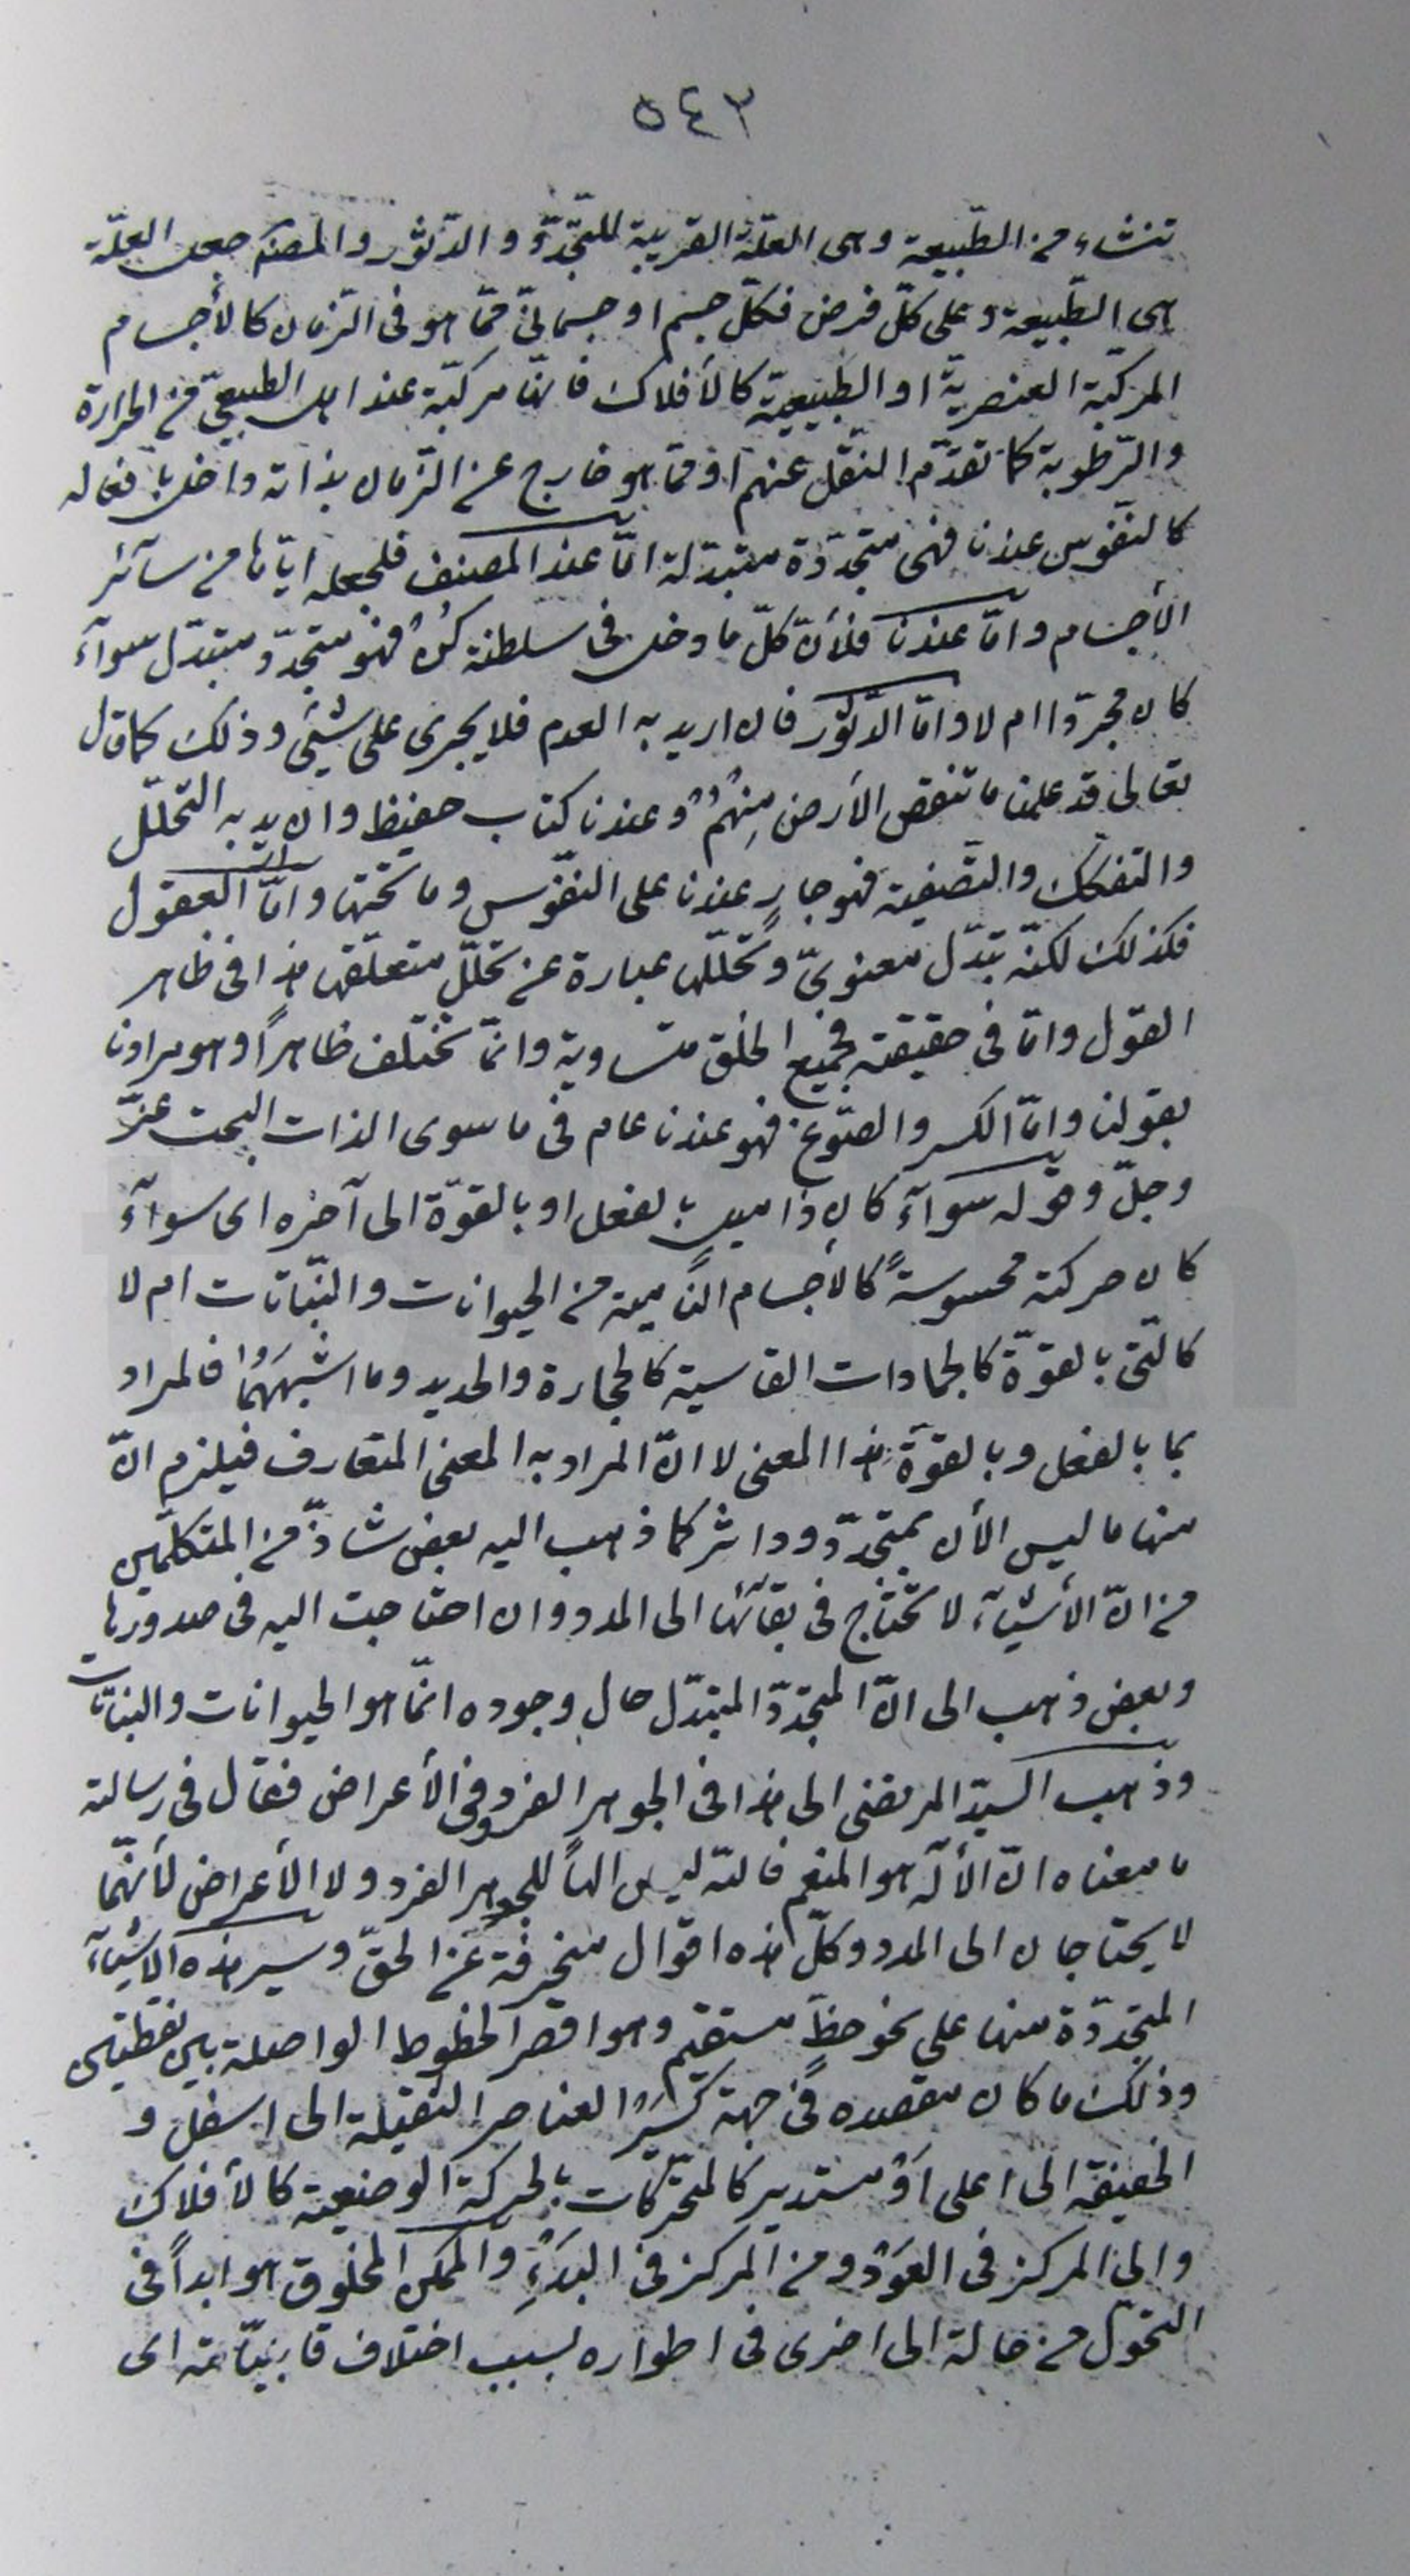 ٥٤٣
تنشاء من الطّبيعة وهى العلّة القريبة للتجدّد والدّثور والمصنّف جعل العلّة
هى الطّبيعة وعلى كلّ فرض فكلّ جسم او جسمانىّ ممّا هو فى الزّمان كالأجسام
المركّبة العنصريّة او الطّبيعيّة كالأفلاك فانّها مركّبة عند اهل الطّبيعىّ من الحرارة
والرّطوبة كما تقدّم النّقل عنهم او ممّا هو خارج عن الزّمان بذاته داخل بافعاله
كالنّفوس عندنا فهى متجدّدة متبدّلة امّا عند المصنف فلجعله ايّاها من سآئر
الأجسام وامّا عندنا فلأنّ كلّ ما دخل فى سلطنة كن فهو متجدّد متبدّل سوآء
كان مجرّدا ام لا وامّا الدّثور فان اريد به العدم فلا يجرى على شئى وذلك كما قال
تعالى قد علمنا ما تنقص الأرض مِنهُم وعندنا كتاب حفيظ وان اريد به التحلّل
والتفكّك والتّصفية فهو جارٍ عندنا على النّفوس وما تحتها وامّا العقول
فكذلك لكنّه تبدّل معنوىّ وتحلّلها عبارة عن تحلّل متعلّقها هذا فى ظاهر
القول وامّا فى حقيقته فجميع الخلق متساوية وانّما تختلف ظاهراً وهو مرادنا
بقولنا وامّا الكسر والصّوغ فهو عندنا عام فى ما سوى الذات البحت عزّ
وجلّ وقوله سوآء كان ذا ميل بالفعل او بالقوّة الى آخره اى سوآء
كان حركته محسوسةً كالأجسام النّامية من الحيوانات والنّباتات ام لا
كالّتى بالقوّة كالجمادات القاسية كالحجارة والحديد وما اشبههما فالمراد
بما بالفعل وبالقوّة هذا المعنى لا انّ المراد به المعنى المتعارف فيلزم انّ
منها ما ليس الأن بمتجدّد وداثر كما ذهب اليه بعض شاذّ من المتكلّمين
من انّ الأشيآء لا تحتاج فى بقآئها الى المدد وان احتاجت اليه فى صدورها
وبعض ذهب الى انّ المتجدّد المتبدّل حال وجوده انّما هو الحيوانات والنباتات
وذهب السيّد المرتضى الى هذا فى الجوهر الفرد وفى الأعراض فقال فى رسالته
ما معناه انّ الأله هو المنعم فاللّه ليس الهاً للجوهر الفرد ولا الأعراض لأنّهما
لا يحتاجان الى المدد وكلّ هذه اقوال منحرفة عن الحقّ وسير هذه الأشيآء
المتجدّدة منها على نحو خطّ مستقيم وهو اقصر الخطوط الواصلة بين نقطتين
وذلك ما كان مقصده فى جهة كسير العناصر الثقيلة الى اسفل و
الخفيفة الى اعلى اَوْ مستدير كالمتحرّكات بالحركة الوضعية كالأفلاك
والى المركز فى العَوْد ومن المركز فى البدَءِ والممكن المخلوق هو ابداً فى
التحوّل من حالة الى اخرى فى اطواره بسبب اختلاف قابليّاته اى